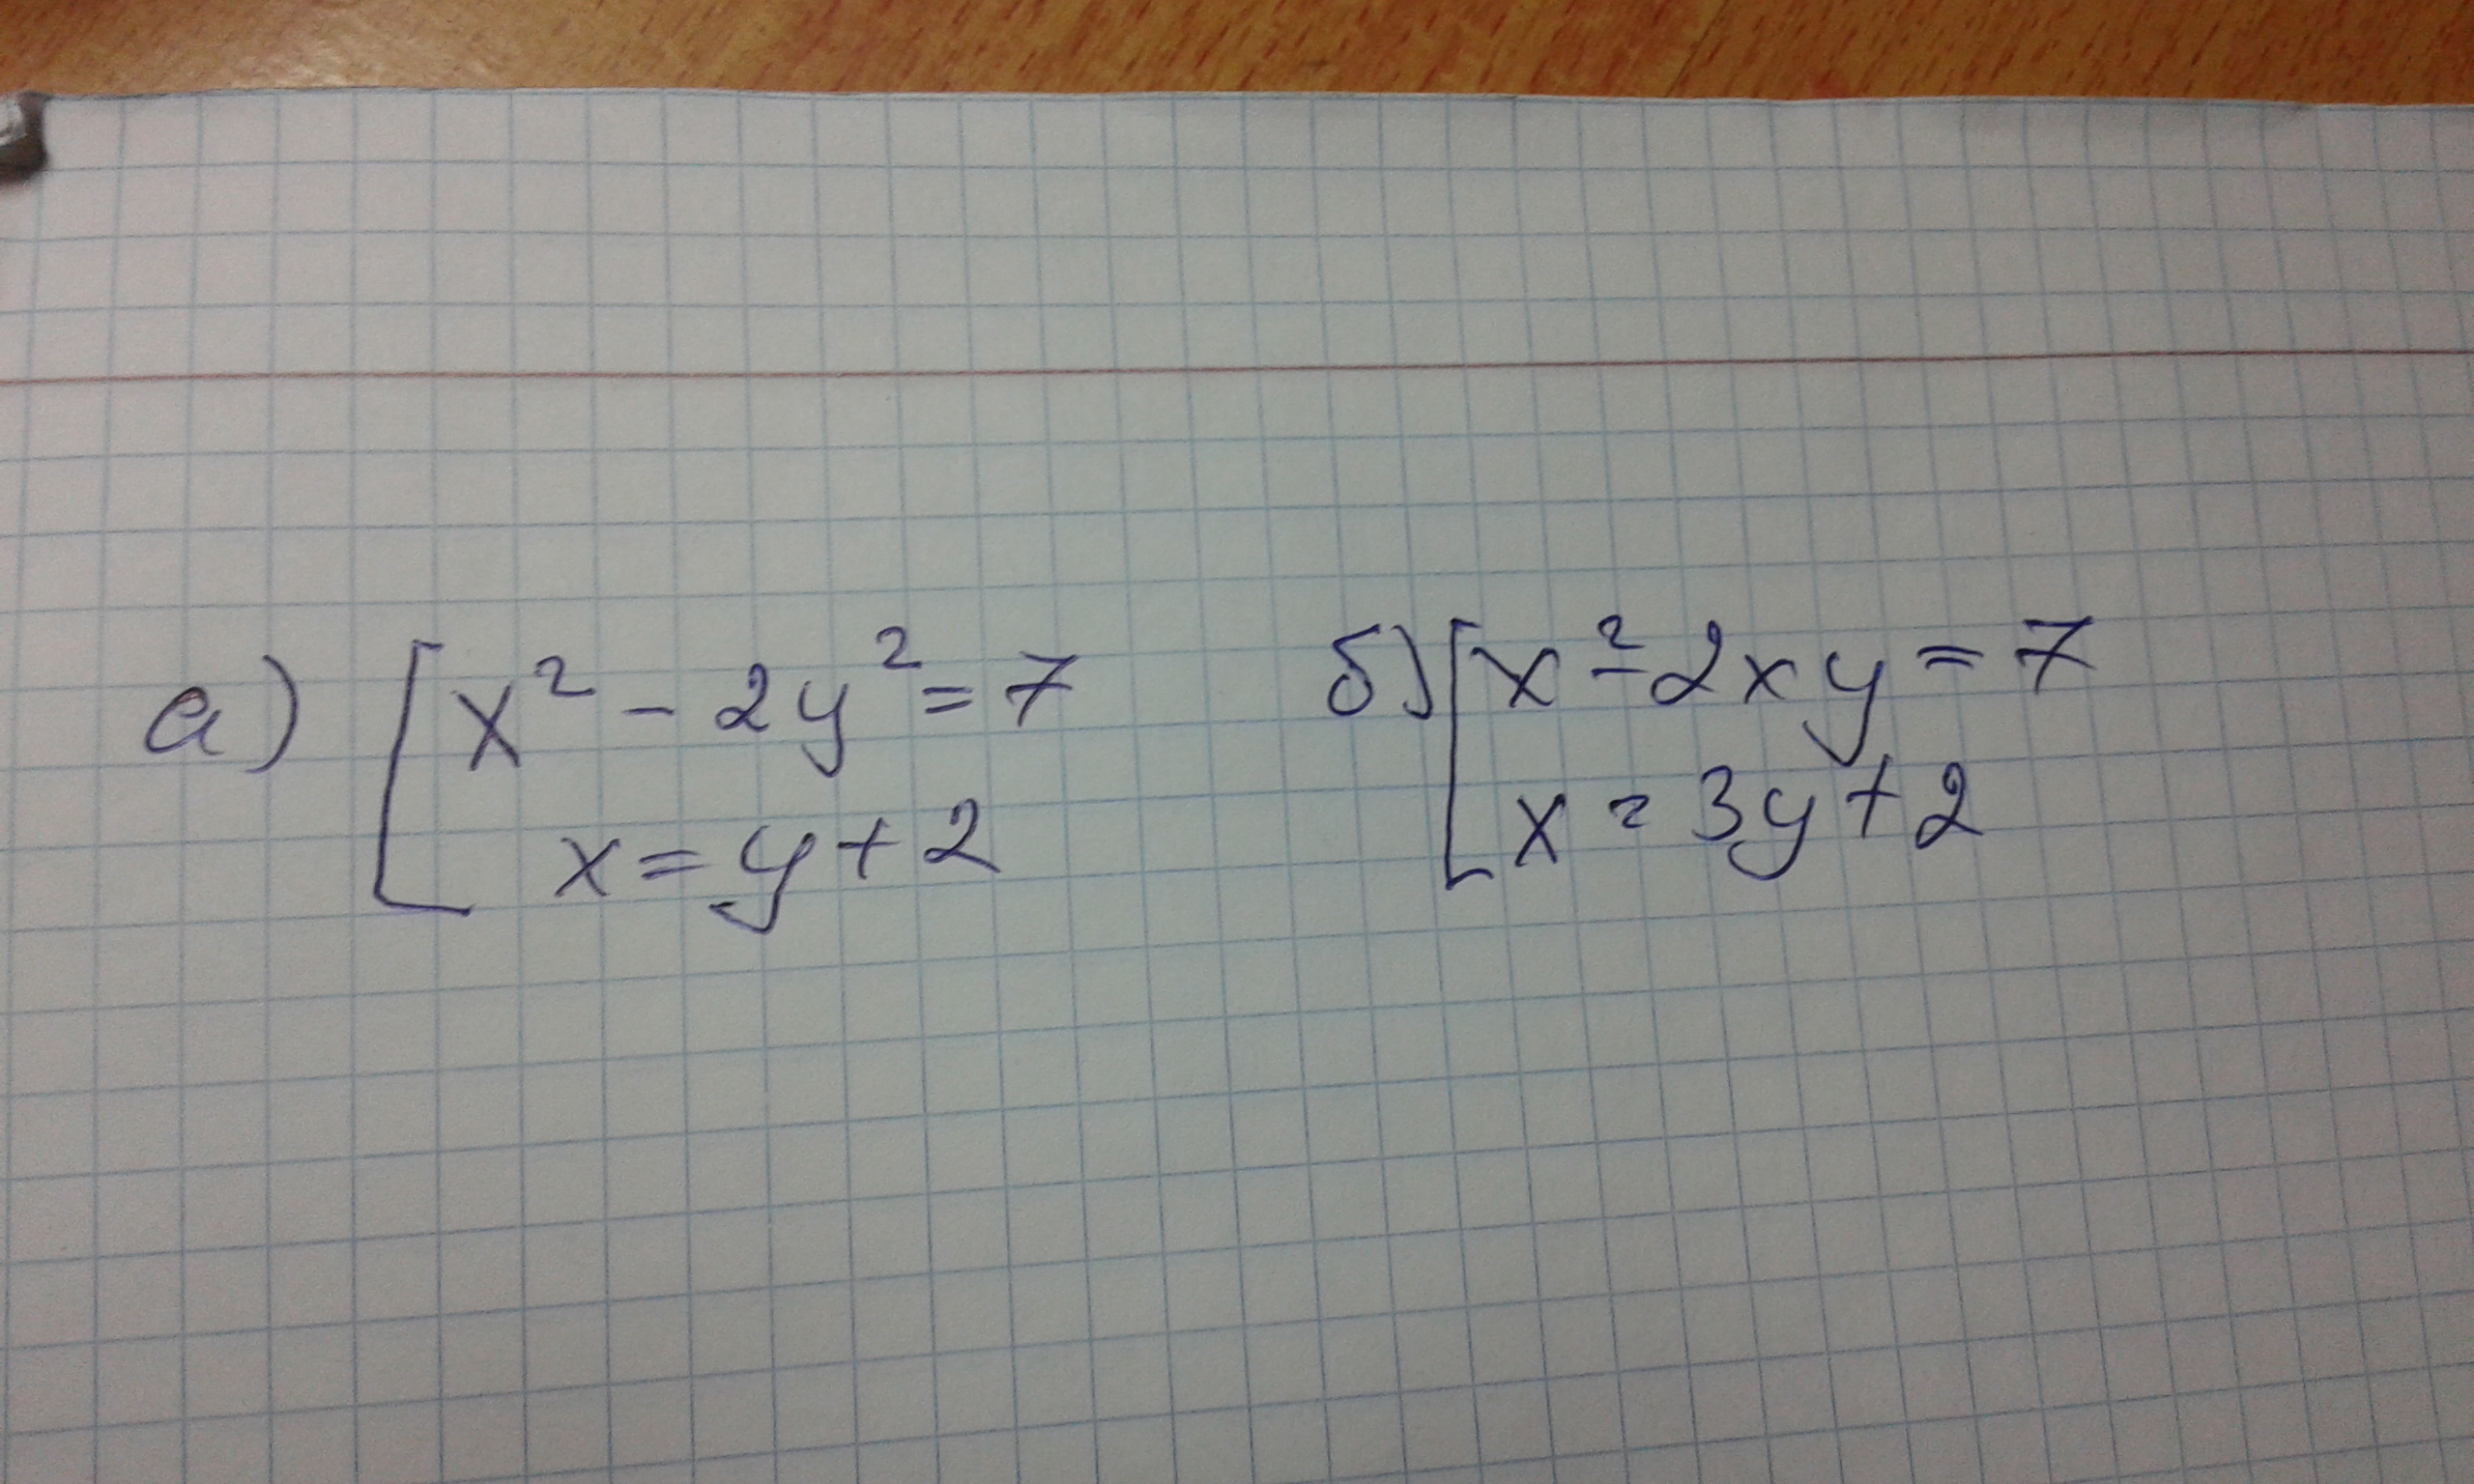 а) [ x² - 2y² = 7
x = y + 2
б) [ x² - 2xy = 7
x = 3y + 2